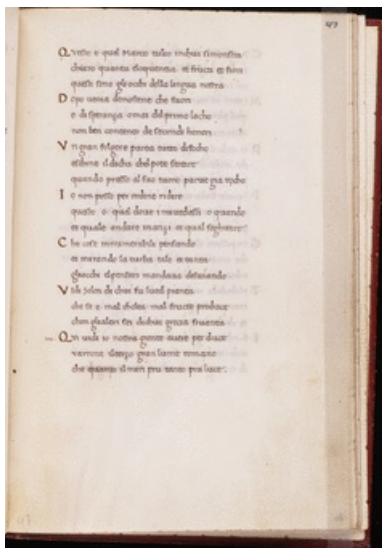 Questo e quel Marco tulio in cui si mostra
chiaro quanta eloquentia et fructi et fiori
questi sono gliocchi della lingua nostra
Dopo uenia demostene che fuori
e di speranza omai del primo locho
non ben contento de secondi honori
Vn gran fulgore parea tutto difocho
eschine il dicha chel pote sentire
quando presso al suo tuono parue gia rocho
Io non posso per ordine ridire
questo o quel doue mi uedessi o quando
et quale andare inanzi et qual seguire
Che cose innumerabili pensando
et mirando la turba tale et tanta
gliocchi el pensier mandaua desuiando
Vidi solon di chui fu lutil pianta
che se e mal mal fructo produce
chon glialtri sei di chui grecia
Qui uidi io nostra gente auere per duce
varrone il terzo gran lume romano
che quanto il miri piu tanto piu luce